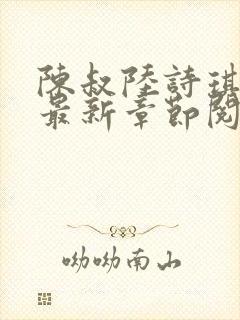 陳叔陸詩琪
最新章節閱
呦呦南山